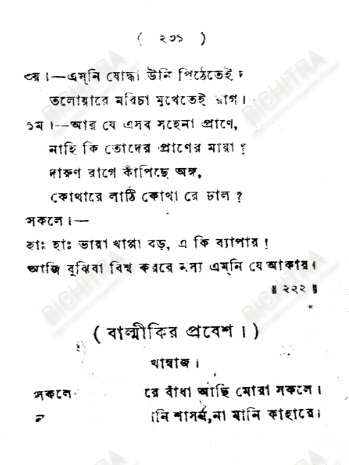 ( ২৩১ )
৩য়।—এম্‌নি যোদ্ধা উনি পিঠেতেই
তলোয়ারে মরিচা মুখেতেই রাগ।
১ম।—আর যে এসব সহেনা প্রাণে,
নাহি কি তোদের প্রাণের মায়া?
দারুণ রাগে কাঁপিছে অঙ্গ,
কোথারে লাঠি কোথা রে ঢাল?
সকলে।—
হাঃ হাঃ ভায়া খাপ্পা বড়, এ কি ব্যাপার!
আজি বুঝিবা বিশ্ব করবে নস্য এম্‌নি যে আকার।
॥ ২২২ ॥
( বাল্মীকির প্রবেশ। )
খাম্বাজ।
সকলে রে বাঁধা আছি মোরা সকলে।
না মানি কাহারে।
BICHITRA